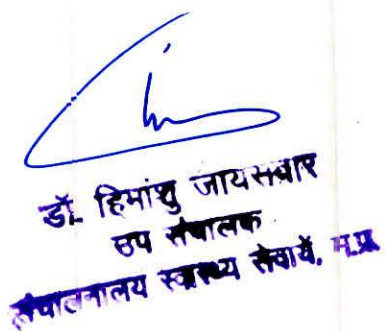 डॉ. हिमांशु जायसवार
उप संचालक
संचालनालय स्वास्थ्य सेवायें, म.प्र.